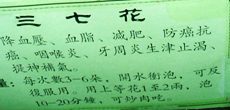 三七花
降血壓、血脂、減肥、防癌抗
癌、咽喉炎、牙周炎生津止渴、
提神補氣。
量：每次數3-6朵，開水衝泡，可反
復服用。用上等花1至2兩，泡
10-20分鐘，可炒肉吃。